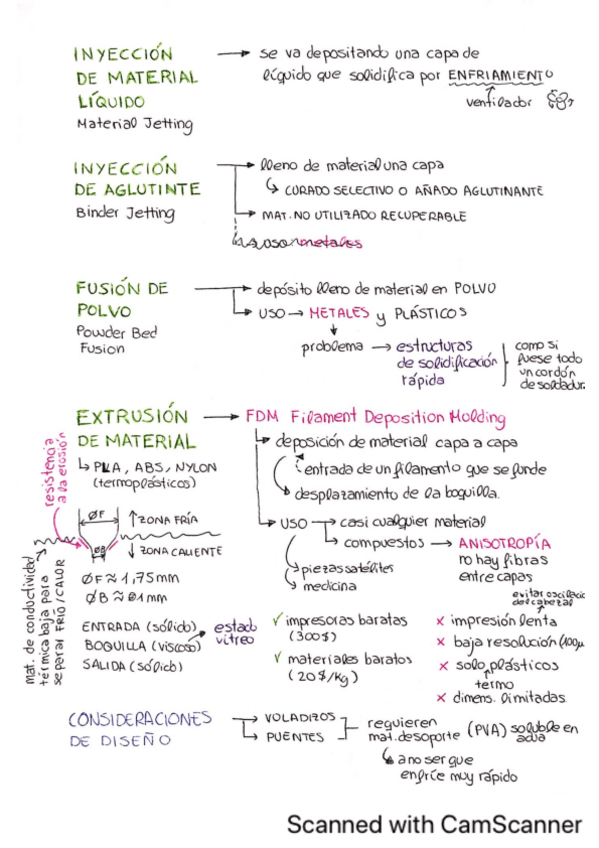 INYECCIÓN → se va depositando una capa de
DE MATERIAL líquido que solidifica por ENFRIAMIENTO
LÍQUIDO ventilador
Material Jetting
INYECCIÓN → lleno de material una capa
DE AGLUTINTE ↳ CURADO SELECTIVO O AÑADO AGLUTINANTE
Binder Jetting → MAT. NO UTILIZADO RECUPERABLE
↳ uson metales
FUSIÓN DE → depósito lleno de material en POLVO
POLVO ↳ USO → METALES y PLÁSTICOS
Powder Bed
Fusion
problema → estructuras
de solidificación
rápida
como si
fuese todo
un cordón
de soldadur
EXTRUSIÓN → FDM Filament Deposition Molding
DE MATERIAL
↳ PLA, ABS, NYLON
(termoplásticos)
resistencia
a la erosión
ØF ↑ ZONA FRÍA
ØB ↓ ZONA CALIENTE
mat. de conductividad
térmica baja para
separar FRÍO/CALOR
ØF ≈ 1,75mm
ØB ≈ Ø1mm
ENTRADA (sólido)
BOQUILLA (viscoso) → estado
vítreo
SALIDA (sólido)
↳ deposición de material capa a capa
entrada de un filamento que se funde
desplazamiento de la boquilla.
↳ USO → casi cualquier material
↳ compuestos → ANISOTROPÍA
no hay fibras
entre capas
piezas satélites
medicina
✓ impresoras baratas
(300$)
✓ materiales baratos
(20$/kg)
evitar oscilacio
del cabezal
x impresión lenta
x baja resolución (100µ
x solo plásticos
termo
x dimens. limitadas
CONSIDERACIONES → VOLADIZOS
DE DISEÑO ↳ PUENTES
requieren
mat. de soporte (PVA) soluble en
agua
↳ a no ser que
enfríe muy rápido
Scanned with CamScanner